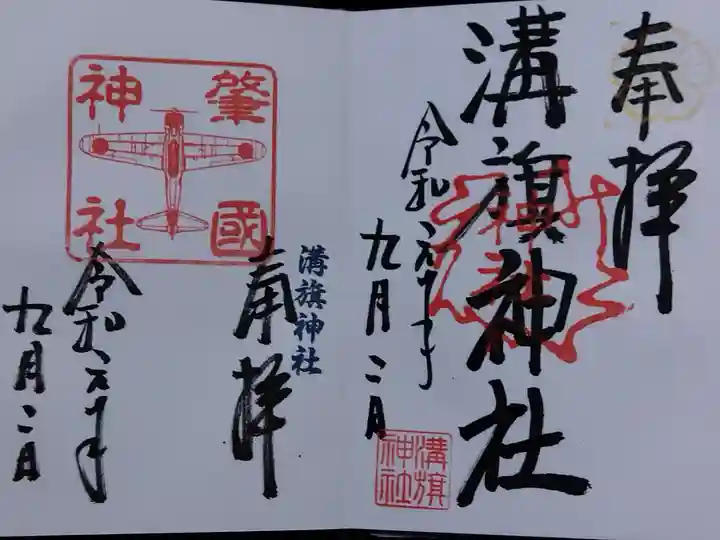 奉拝
溝旗神社
令和
九月二日
溝旗
神社
肇國
神社
溝旗神社
奉拝
令和
九月二日